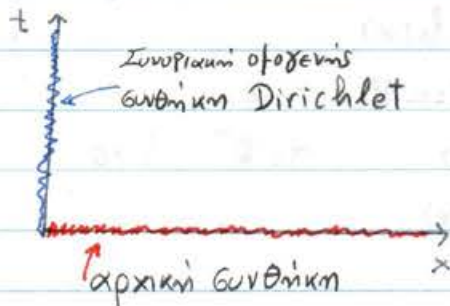 t
Συνοριακή ομογενής
συνθήκη Dirichlet
x
αρχική συνθήκη